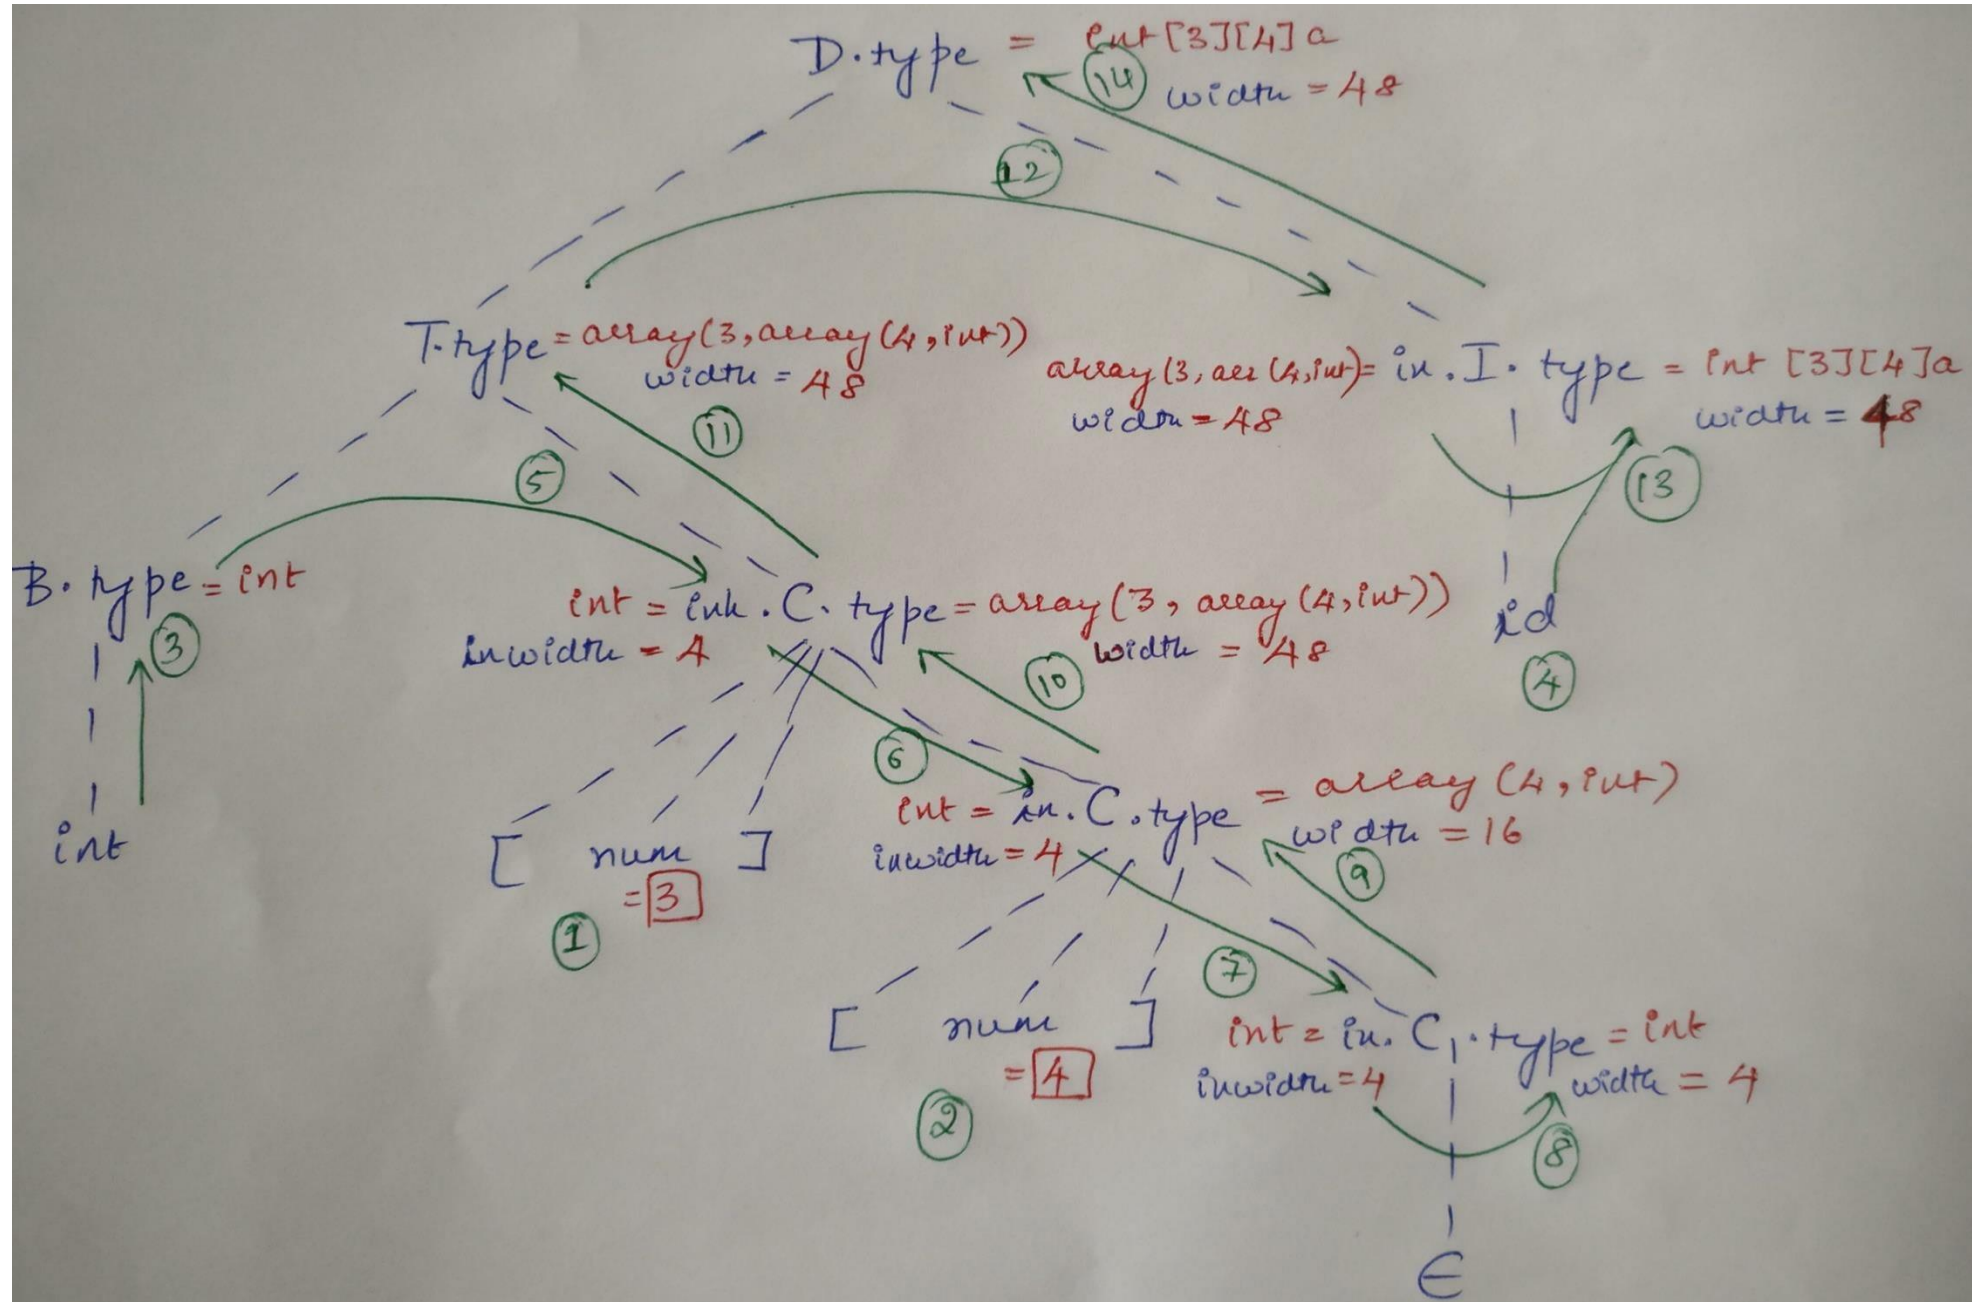 D.type = int[3][4]a
14 width = 48
12
T.type = array(3,array(4,int))
width = 48
array(3,arr(4,int)= in.I.type = int [3][4]a
width = 48
width = 48
11
5
13
B.type = int
3
int = inh.C.type = array(3, array(4,int))
inwidth = 4
width = 48
id
4
10
6
int
int = in.C.type = array(4,int)
inwidth = 4
width = 16
9
[ num ]
= 3
1
7
[ num ]
= 4
2
int = in.C1.type = int
inwidth = 4
width = 4
8
∈